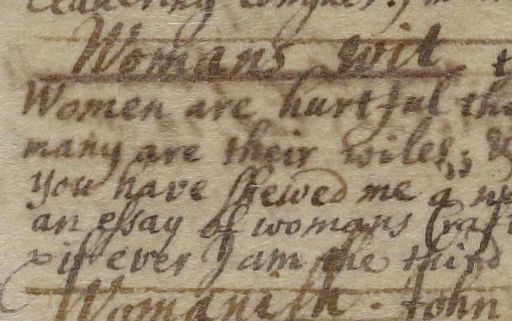 Womans wit
Women are hurtful
many are their wiles;
you have shewed me a
an essay of womans
if ever I am the third
Womanish. John